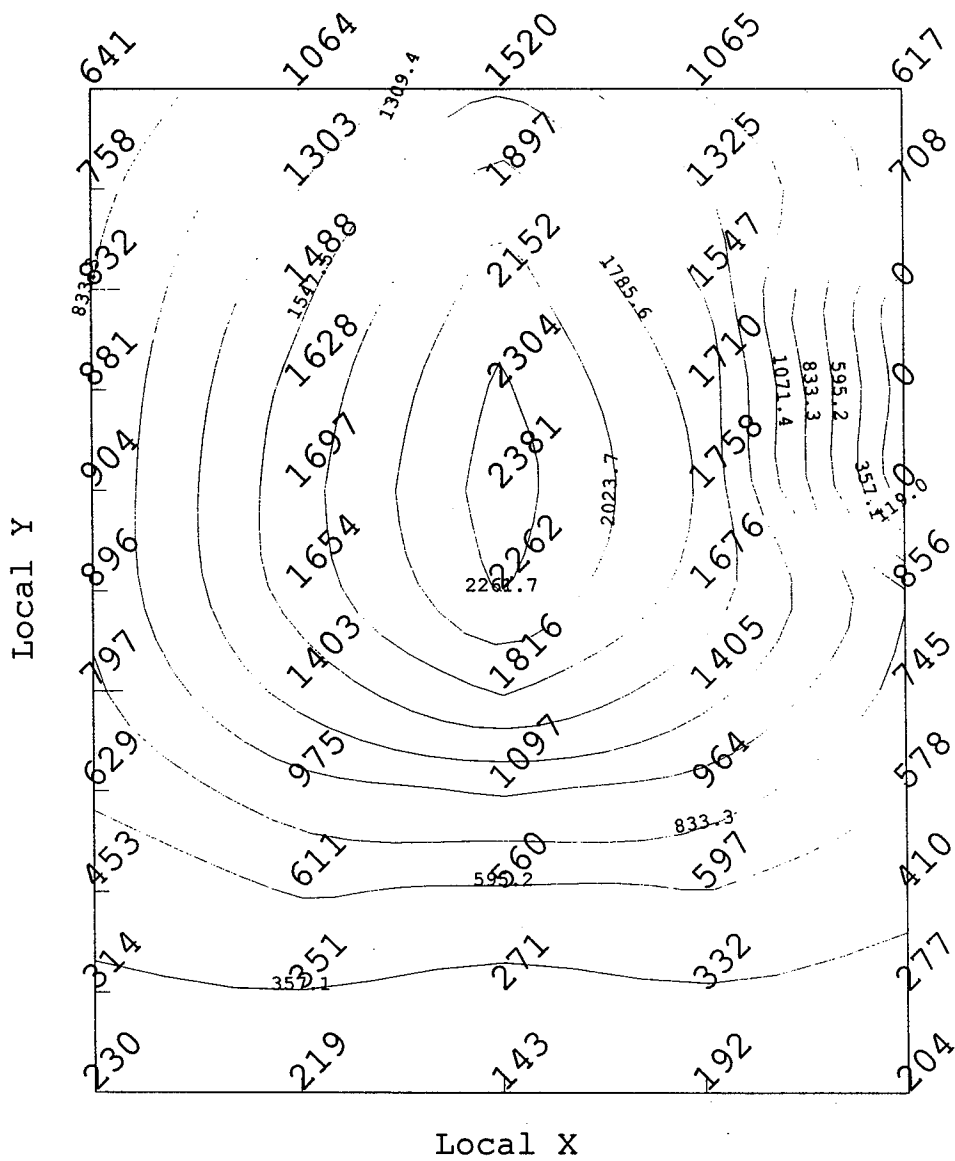 641 1064 1520 1065 617
1309.4
758 1303 1897 1325 708
832 1488 2152 1547 0
833.3 1547.5 1785.6
881 1628 2304 1710 0
1071.4 833.3 595.2
904 1697 2381 1758 0
2023.7 357.1 119.0
896 1654 2262 1676 856
2261.7
797 1403 1816 1405 745
629 975 1097 964 578
833.3
453 611 560 597 410
595.2
314 351 271 332 277
357.1
230 219 143 192 204
Local Y
Local X